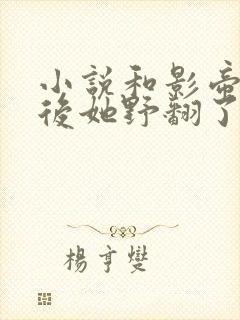 小説和影帝
後她野翻了
楊亨燮